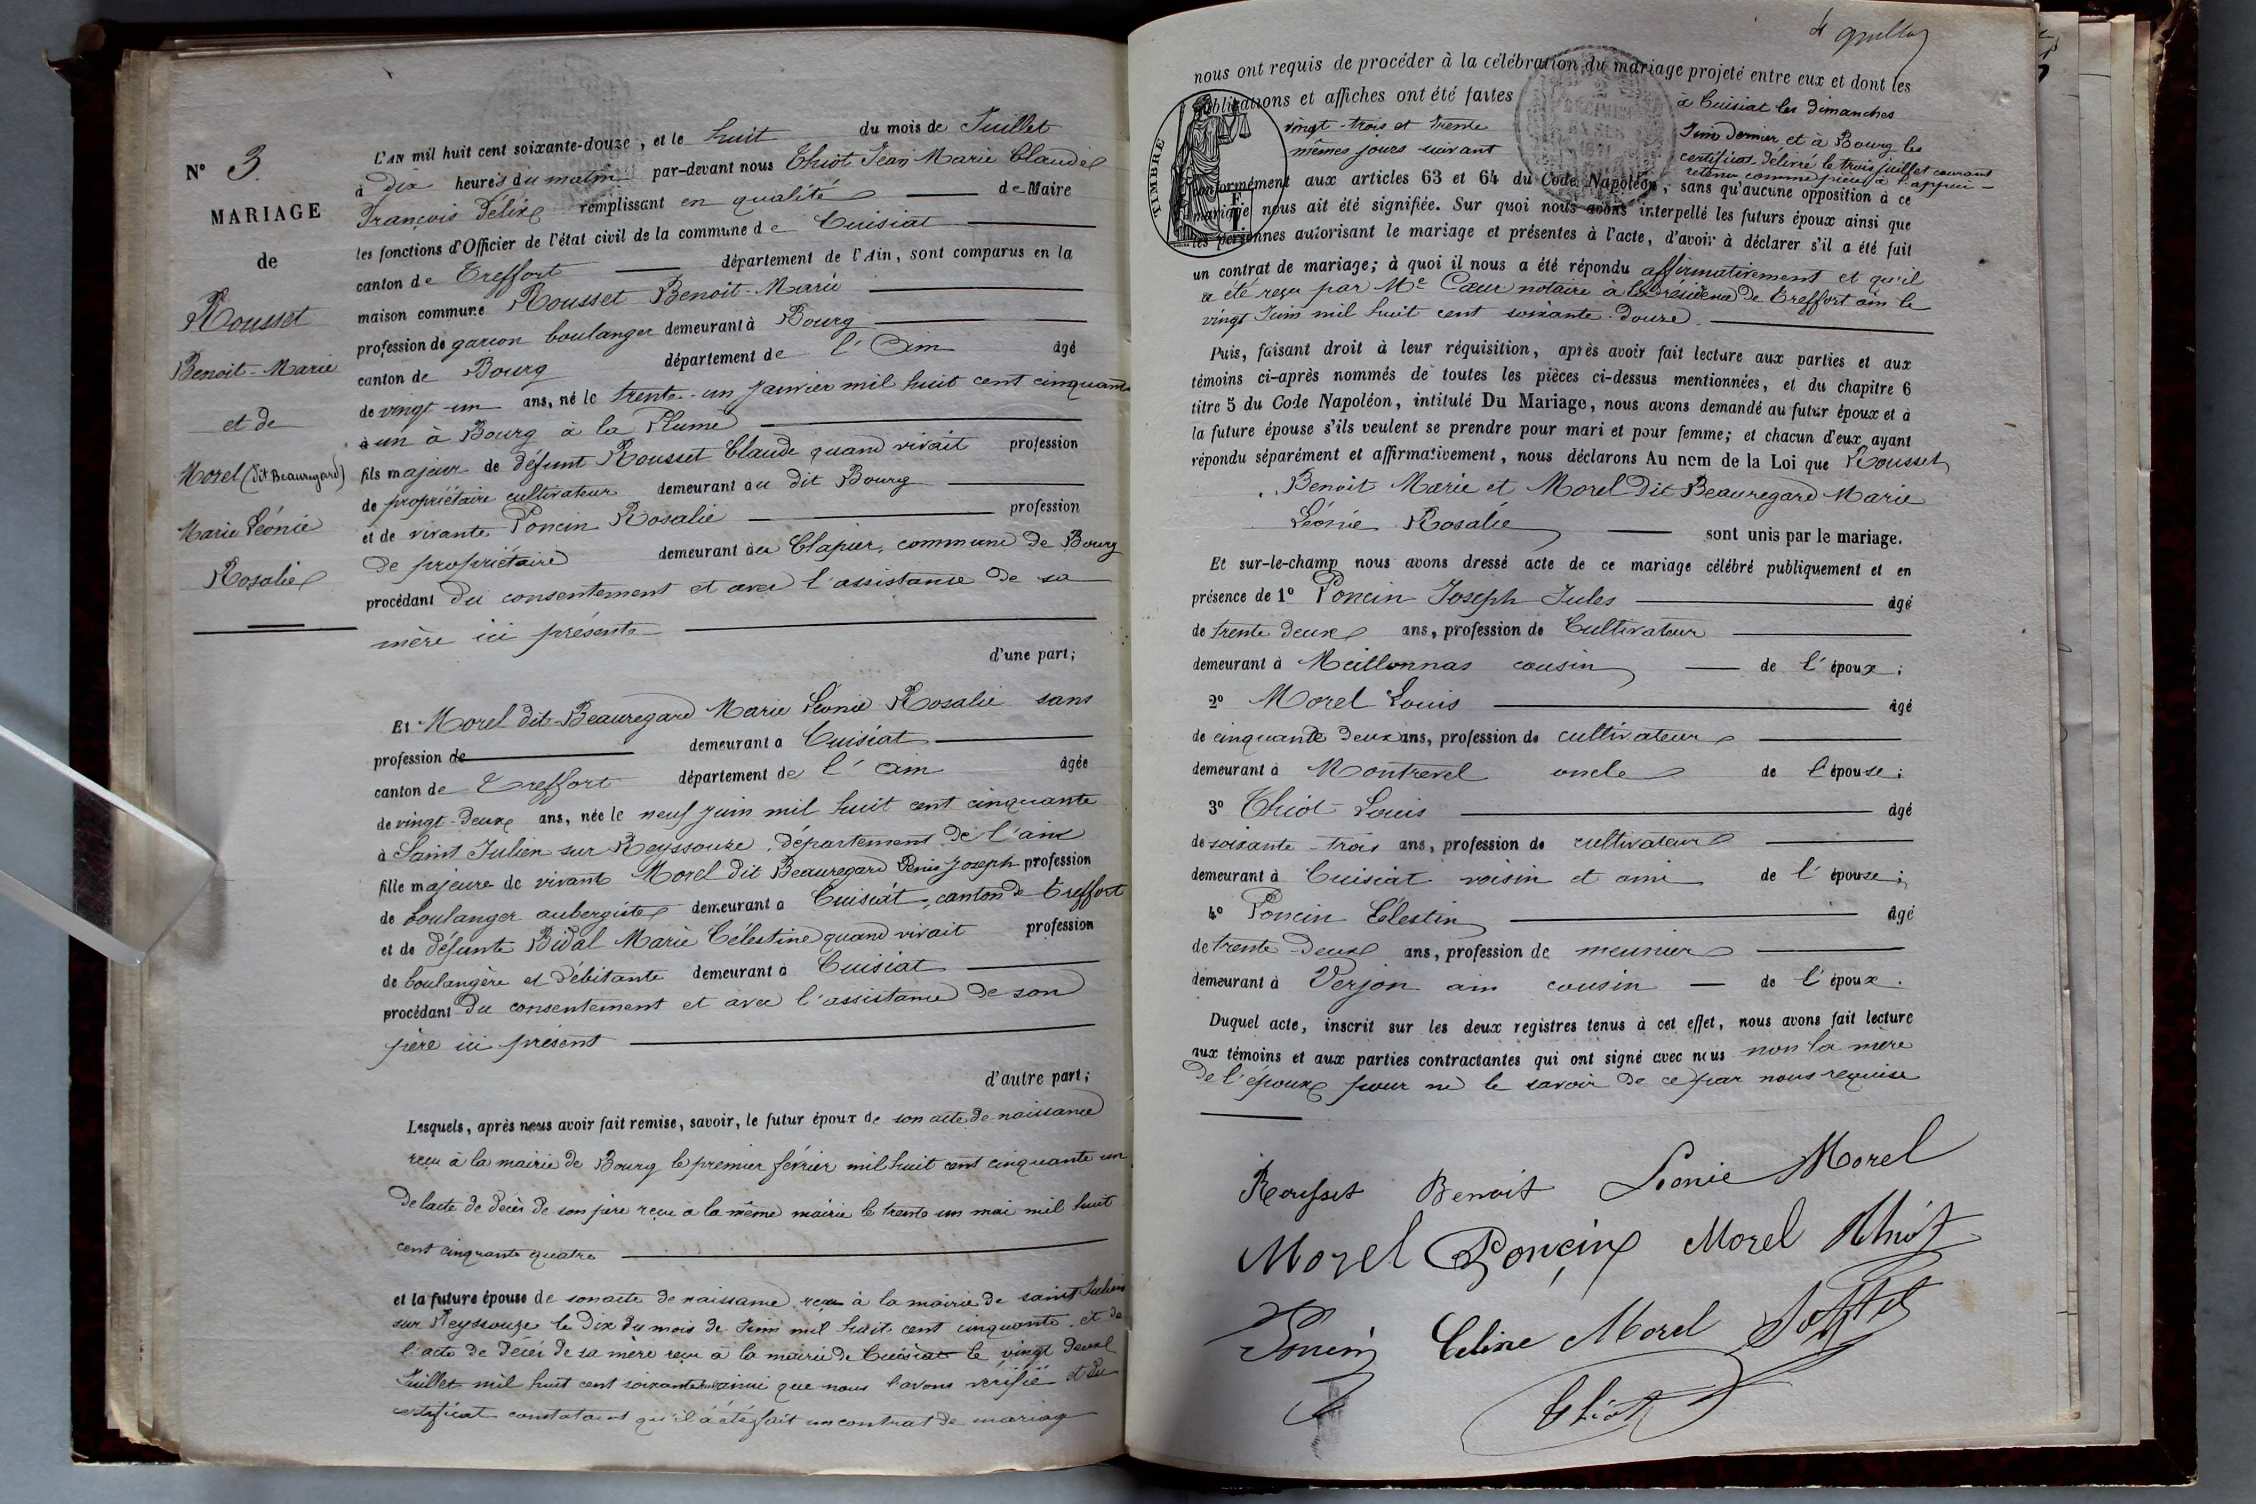 N° 3.
MARIAGE
de
Rousset
Benoit-Marie
et de
Morel (dit Beauregard)
Marie Léonie
Rosalie
L'AN mil huit cent soixante-douze, et le huit du mois de Juillet
à dix heures du matin par-devant nous Thiot Jean Marie Claude
François Félix remplissant en qualité de Maire
les fonctions d'Officier de l'état civil de la commune de Cuisiat
canton de Treffort département de l'Ain, sont comparus en la
maison commune Rousset Benoit-Marie
profession de garçon boulanger demeurant à Bourg
canton de Bourg département de l'Ain âgé
de vingt-un ans, né le trente-un janvier mil huit cent cinquante
à un à Bourg à la Plume
fils majeur de défunt Rousset Claude quand vivait profession
de propriétaire cultivateur demeurant au dit Bourg
et de vivante Poncin Rosalie profession
de propriétaire demeurant au Clapier, commune de Bourg
procédant du consentement et avec l'assistance de sa
mère ici présente
d'une part;
Et Morel dit Beauregard Marie Léonie Rosalie sans
profession de demeurant à Cuisiat
canton de Treffort département de l'ain âgée
de vingt-deux ans, née le neuf juin mil huit cent cinquante
à Saint Julien sur Reyssouze, département de l'ain
fille majeure de vivant Morel dit Beauregard Denis Joseph profession
de boulanger aubergiste demeurant à Cuisiat, canton de Treffort
et de défunte Bidal Marie Célestine quand vivait profession
de boulangère et débitante demeurant à Cuisiat
procédant du consentement et avec l'assistance de son
père ici présent
d'autre part;
Lesquels, après nous avoir fait remise, savoir, le futur époux de son acte de naissance
reçu à la mairie de Bourg le premier février mil huit cent cinquante un
de l'acte de décès de son père reçu à la même mairie le trente un mai mil huit
cent cinquante quatre
et la future épouse de son acte de naissance reçu à la mairie de saint Julien
sur Reyssouze le dix du mois de Juin mil huit cent cinquante et de
l'acte de décès de sa mère reçu à la mairie de Cuisiat le vingt deux
Juillet mil huit cent soixante ainsi que nous l'avons vérifié et du
certificat constatant qu'il a été fait un contrat de mariage
nous ont requis de procéder à la célébration du mariage projeté entre eux et dont les
publications et affiches ont été faites à Cuisiat les dimanches
vingt-trois et trente Juin dernier et à Bourg les
mêmes jours suivant certificat délivré le trois juillet courant
retenu comme pièce à l'appui
conformément aux articles 63 et 64 du Code Napoléon, sans qu'aucune opposition à ce
mariage nous ait été signifiée. Sur quoi nous avons interpellé les futurs époux ainsi que
les personnes autorisant le mariage et présentes à l'acte, d'avoir à déclarer s'il a été fait
un contrat de mariage; à quoi il nous a été répondu affirmativement et qu'il
a été reçu par Me Cœur notaire à la résidence de Treffort ain le
vingt Juin mil huit cent soixante-douze.
Puis, faisant droit à leur réquisition, après avoir fait lecture aux parties et aux
témoins ci-après nommés de toutes les pièces ci-dessus mentionnées, et du chapitre 6
titre 5 du Code Napoléon, intitulé Du Mariage, nous avons demandé au futur époux et à
la future épouse s'ils veulent se prendre pour mari et pour femme; et chacun d'eux ayant
répondu séparément et affirmativement, nous déclarons Au nom de la Loi que Rousset
Benoit Marie et Morel dit Beauregard Marie
Léonie Rosalie sont unis par le mariage.
Et sur-le-champ nous avons dressé acte de ce mariage célébré publiquement et en
présence de 1° Poncin Joseph Jules âgé
de trente deux ans, profession de Cultivateur
demeurant à Meillonnas cousin de l'époux;
2° Morel Louis âgé
de cinquante deux ans, profession de cultivateur
demeurant à Montrevel oncle de l'épouse;
3° Thiot Louis âgé
de soixante-trois ans, profession de cultivateur
demeurant à Cuisiat voisin et ami de l'épouse;
4° Poncin Célestin âgé
de trente-deux ans, profession de meunier
demeurant à Verjon ain cousin de l'époux.
Duquel acte, inscrit sur les deux registres tenus à cet effet, nous avons fait lecture
aux témoins et aux parties contractantes qui ont signé avec nous non la mère
de l'époux pour ne le savoir de ce par nous requise
Rousset Benoit Léonie Morel
Morel Poncin Morel Thiot
Poncin Celine Morel
Thiot
TIMBRE
F.
1.